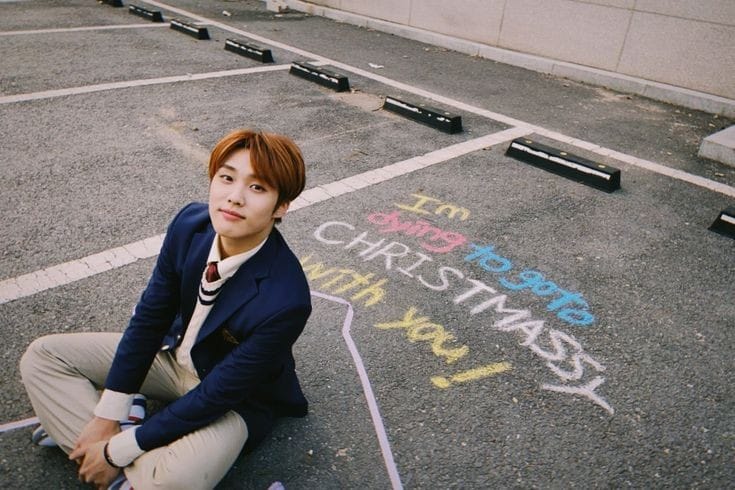 I'm
dying to goto
CHRISTMASSY
with you!